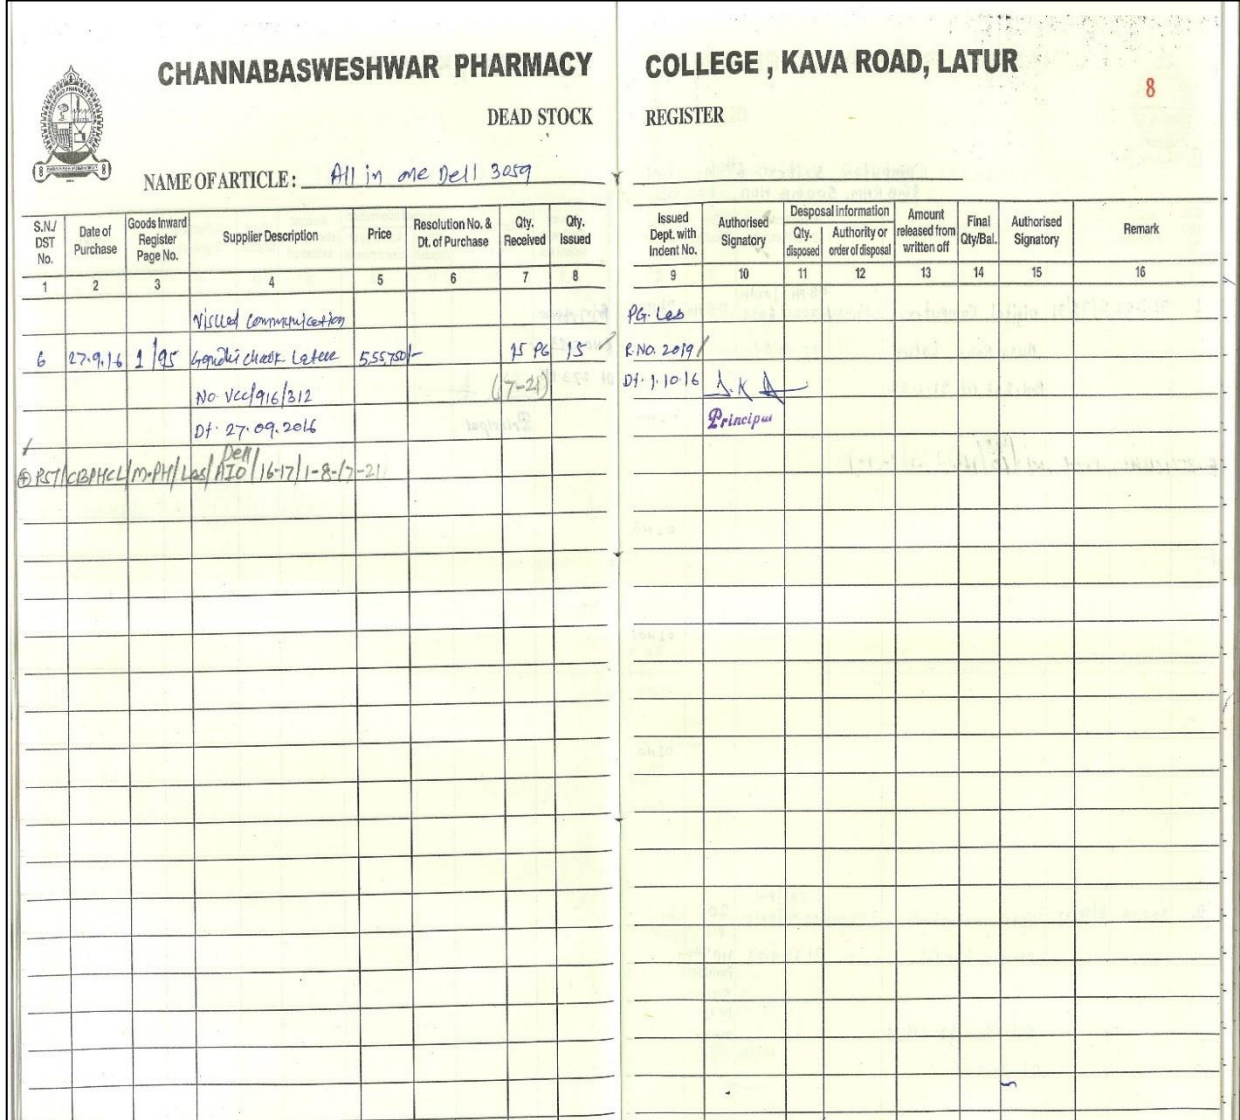 CHANNABASWESHWAR PHARMACY COLLEGE , KAVA ROAD, LATUR
8
DEAD STOCK REGISTER
NAME OF ARTICLE : All in one Dell 3059
S.N./ DST No. Date of Purchase Goods Inward Register Page No. Supplier Description Price Resolution No. & Dt. of Purchase Qty. Received Qty. Issued Issued Dept. with Indent No. Authorised Signatory Desposal information Qty. disposed Authority or order of disposal Amount released from written off Final Qty/Bal. Authorised Signatory Remark
1 2 3 4 5 6 7 8 9 10 11 12 13 14 15 16
Visual Communication PG. Lab
6 27.9.16 1/95 Gandhi chowk Latur 555750/- 15 PG 15 R.NO. 2019
No. VCC/916/312 (7-21) Dt. 1.10.16
Dt. 27.09.2016 Principal
Dell
PST/CBPHCL/M.PH/Lab/AIO/16-17/1-8-/7-21